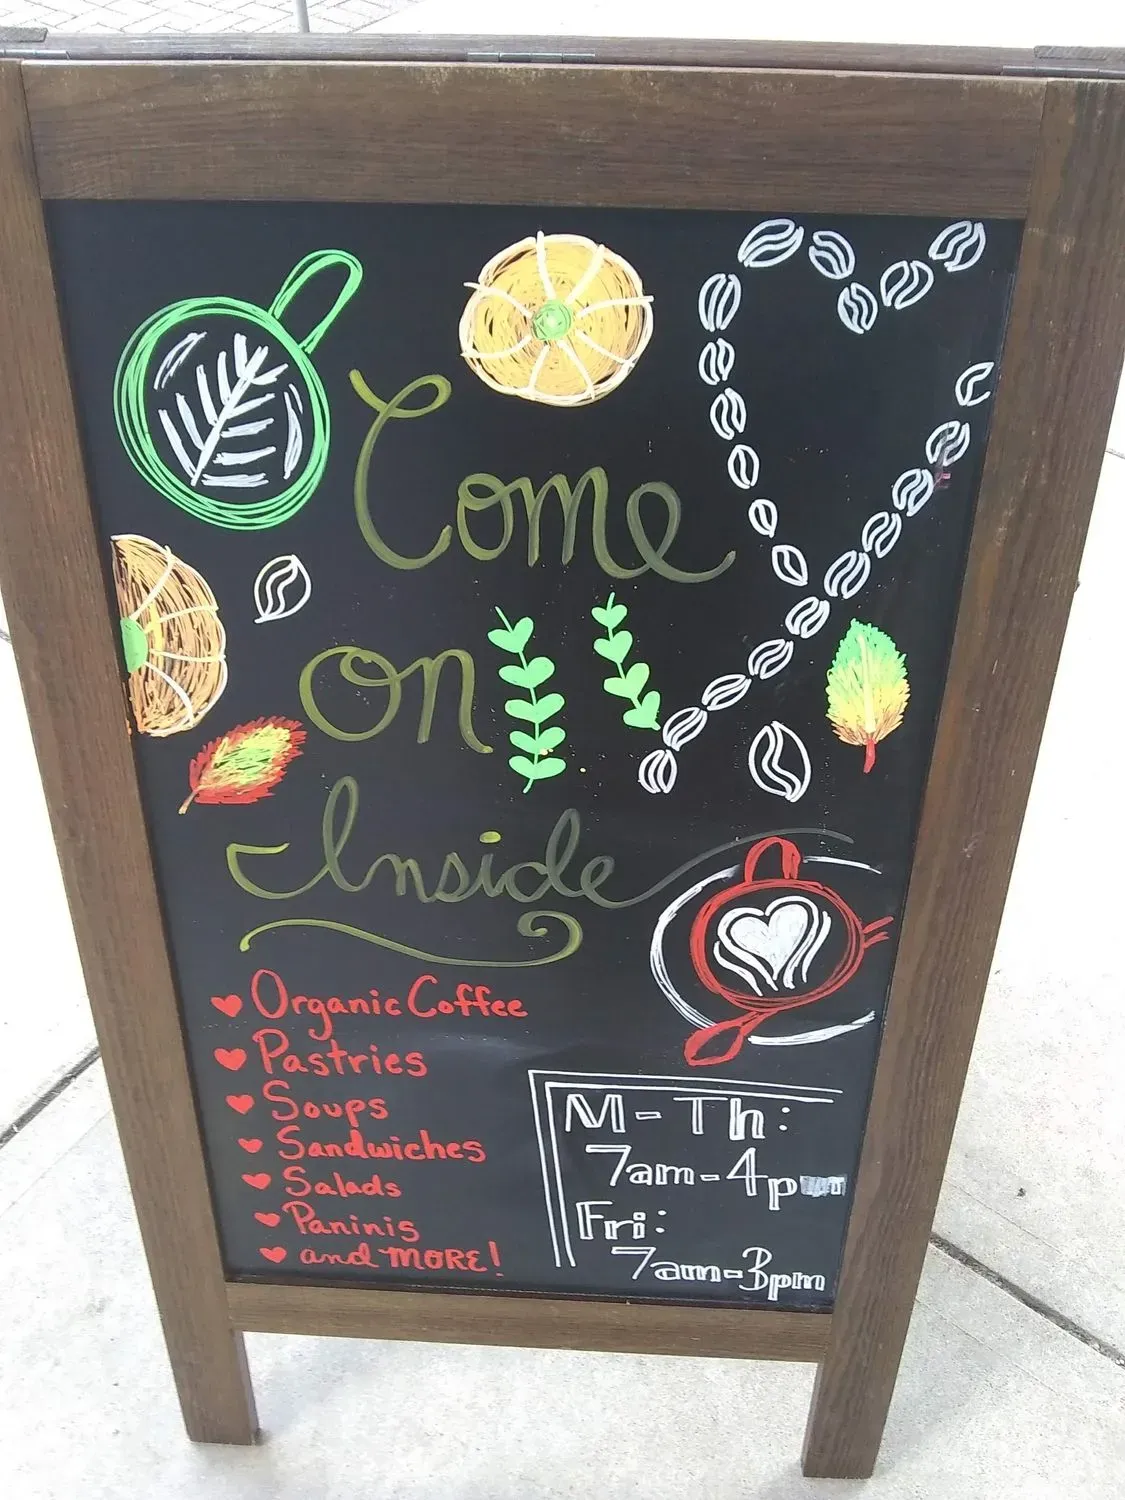 Come
on
Inside
Organic Coffee
Pastries
Soups
Sandwiches
Salads
Paninis
and MORE!
M - Th:
7am - 4pm
Fri:
7am - 3pm